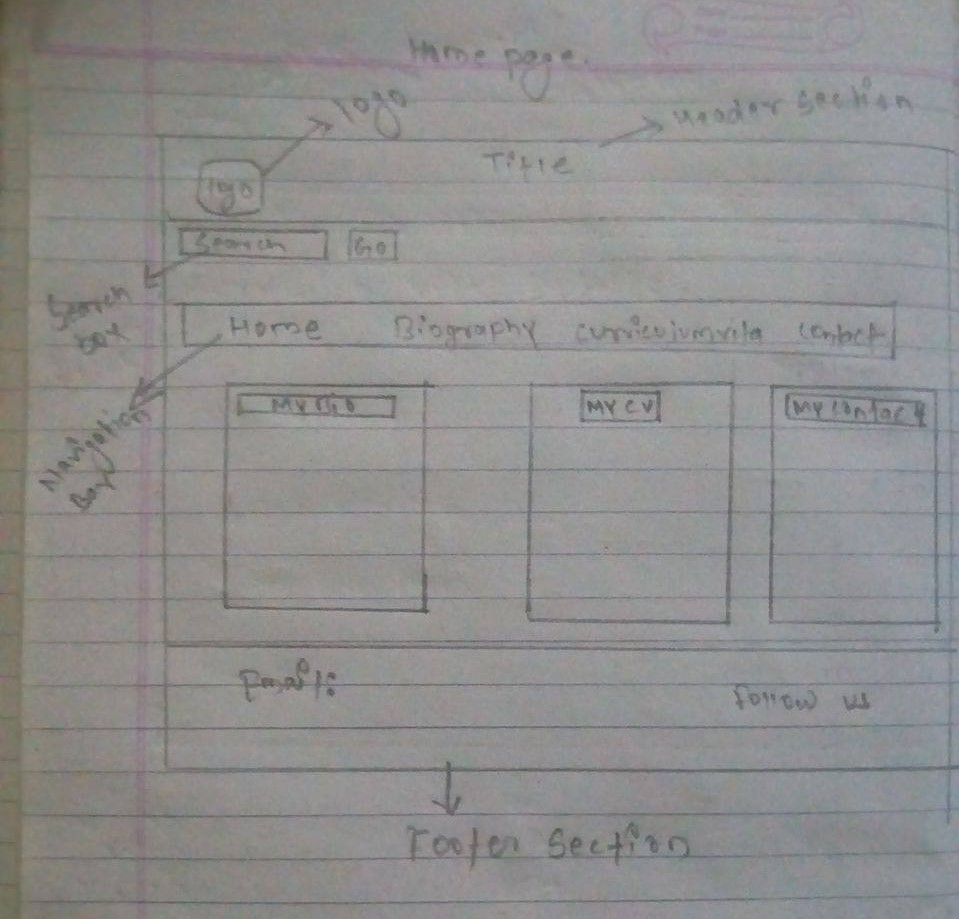 Home page.
logo
Header section
Title
logo
Search
Go
Search
box
Home Biography curricujumvita contact
My BIO
MY CV
My contact
Navigation
Bar
Email:
Follow us
Footer Section